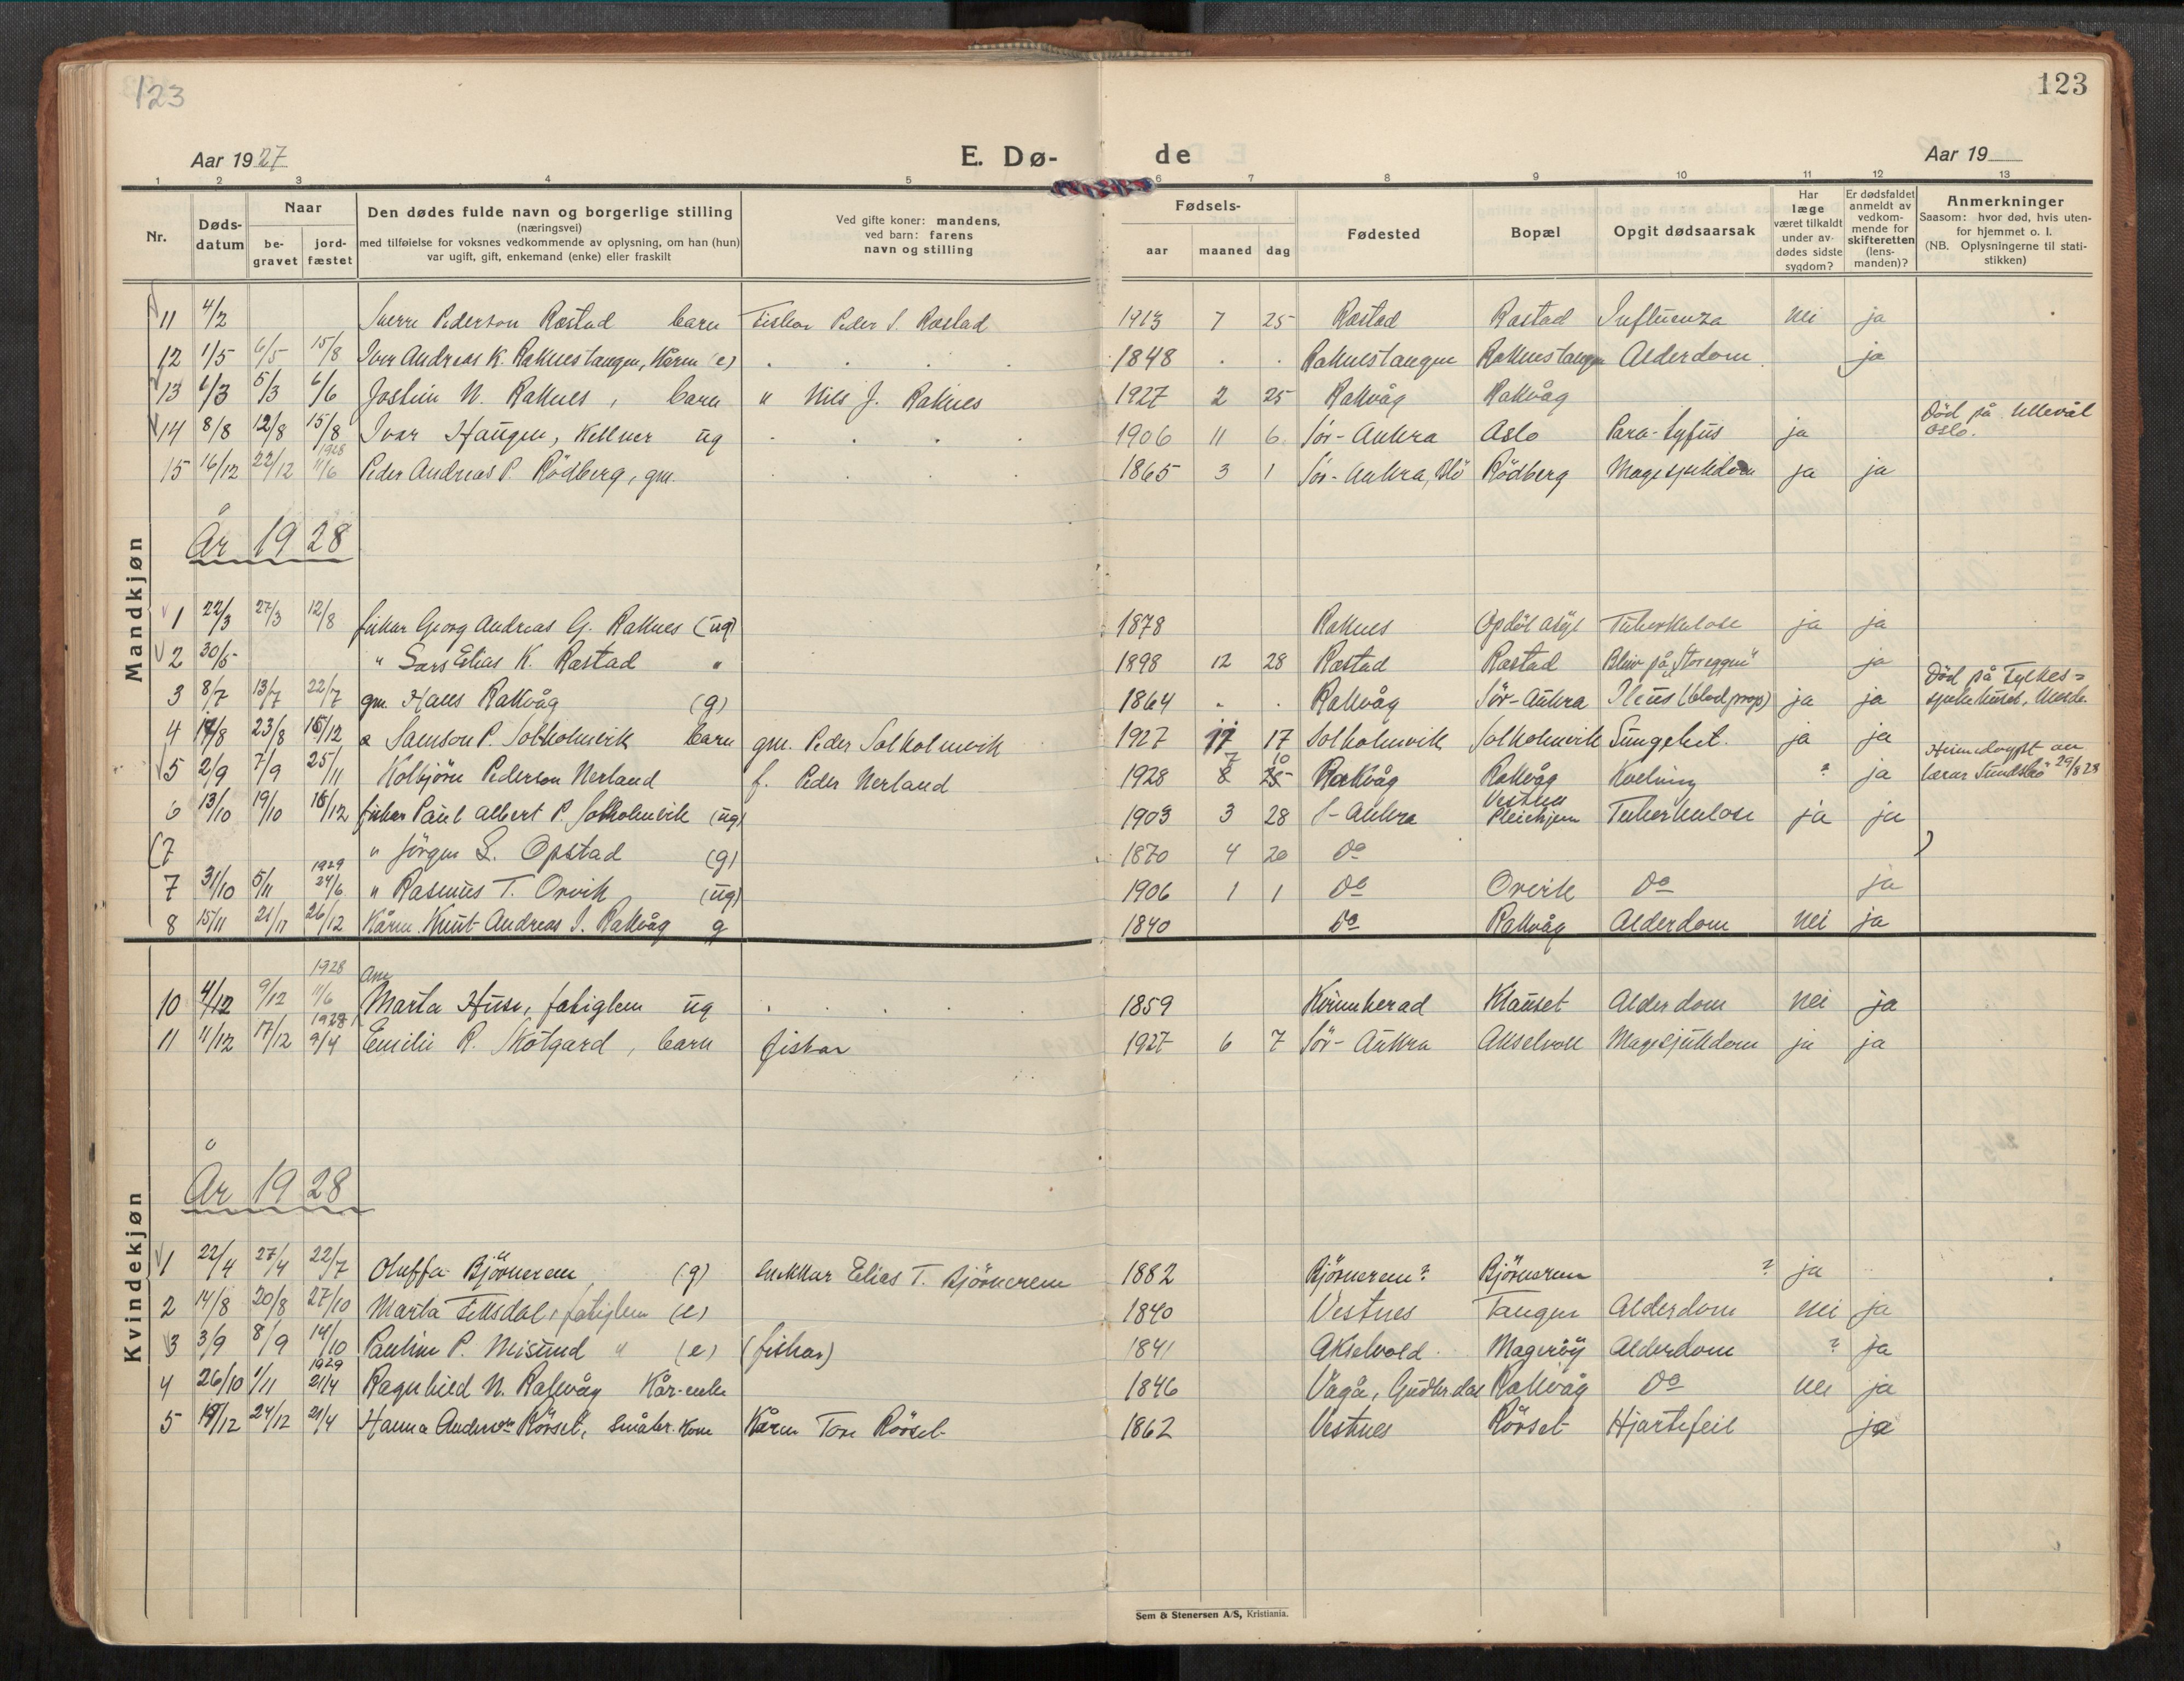 123
123
Aar 1927
E. Dø-
de
Aar 19
1 2 3 4 5 6 7 8 9 10 11 12 13
Nr.
Døds-
datum
Naar
be-
gravet
jord-
fæstet
Den dødes fulde navn og borgerlige stilling
(næringsvei)
med tilføielse for voksnes vedkommende av oplysning, om han (hun)
var ugift, gift, enkemand (enke) eller fraskilt
Ved gifte koner: mandens,
ved barn: farens
navn og stilling
Fødsels-
aar maaned dag
Fødested
Bopæl
Opgit dødsaarsak
Har
læge
været tilkaldt
under av-
dødes sidste
sygdom?
Er dødsfaldet
anmeldt av
vedkom-
mende for
skifteretten
(lens-
manden)?
Anmerkninger
Saasom: hvor død, hvis uten-
for hjemmet o. l.
(NB. Oplysningerne til stati-
stikken)
Mandkjøn
11 4/2 Sverre Pederson Røstad barn Fiskar Peder S. Røstad 1913 7 25 Røstad Røstad Influenza nei ja
12 1/5 6/5 15/8 Iver Andreas K. Raknestangen, Kårm (e) 1848 Raknestangen Raknestangen Alderdom ja
13 1/3 5/3 6/6 Jostein N. Raknes, barn " Nils J. Raknes 1927 2 25 Rakvåg Rakvåg
14 8/8 12/8 15/8 Ivar Haugen, Kellner ug 1906 11 6 Sør-Aukra Oslo Para-tyfus ja Død på Ullevål
Oslo.
15 16/12 22/12 1928 11/6 Peder Andreas P. Rödberg, gm. 1865 3 1 Sør-Aukra, Rödberg Magesjukdom ja ja
År 1928
1 22/3 27/3 12/8 fiskar Georg Andreas G. Raknes (ug) 1878 Raknes Opdöl asyl Tuberkulose ja ja
2 30/5 " Lars Elias K. Røstad " 1898 12 28 Røstad Røstad Bleiv på "Storeggen" ja
3 8/7 13/7 22/7 gm. Hans Rakvåg (g) 1864 Rakvåg Sör-Aukra Ileus (blodprop) ja ja Död på Fylkes-
sjukehuset, Molde.
4 17/8 23/8 16/12 Samson P. Solholmvik barn gm. Peder Solholmvik 1927 11 17 Solholmvik Solholmvik Lungebet. ja ja
5 2/9 7/9 25/11 Kolbjörn Pederson Nerland f. Peder Nerland 1928 8 7 25 10 Rakvåg Rakvåg Kvelning ? ja Heimedöypt av
lærar Sundsbö 29/8 28
6 13/10 19/10 16/12 fiskar Paul Albert P. Solholmvik (ug) 1903 3 28 S-Aukra Vestnes
Pleiehjem Tuberkulose ja ja
(7 " Jörgen L. Opstad (g) 1870 4 20 do )
7 31/10 5/11 1929 24/6 " Rasmus T. Orvik (ug) 1906 1 1 do Orvik do ja
8 15/11 21/11 26/12 Kårm. Knut Andreas I. Rakvåg g 1840 do Rakvåg Alderdom nei ja
Kvindekjøn
10 4/12 9/12 1928 11/6 Ane
Marta Huse, fatiglem ug 1859 Kvinnherad Klauset Alderdom nei ja
11 11/12 17/12 1928 9/4 Emilie R. Skotgard, barn fiskar 1927 6 7 Sör-Aukra Akselvoll Magesjukdom ja ja
År 1928
1 22/4 27/4 22/7 Oluffa Björnerem (g) snikkar Elias T. Björnerem 1882 Björnerem? Björnerem ? ja
2 14/8 20/8 27/10 Marta fatiglem (e) 1840 Vestnes Tangen Alderdom nei ja
3 3/9 8/9 14/10 Pauline P. Misund " (e) (fiskar) 1841 Akselvold Mageröy Alderdom ? ja
4 26/10 1/11 1929 21/4 Ragnhild N. Rakvåg Kår-enke 1846 Vågå, Gudbr.dal Rakvåg do nei ja
5 19/12 24/12 21/4 Hanna Andersdtr Rörset, småbr. kone Kårm Tore Rörset 1862 Vestnes Rörset Hjartefeil ja
Sem & Stenersen A/S, Kristiania.